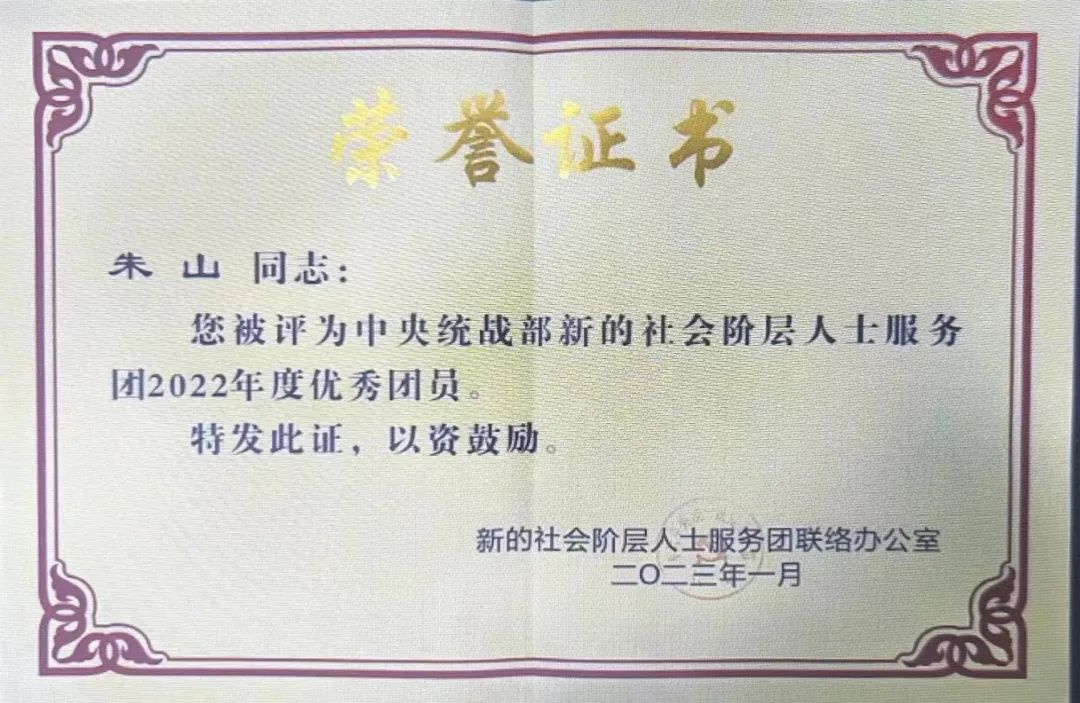 荣誉证书
朱山 同志：
您被评为中央统战部新的社会阶层人士服务
团2022年度优秀团员。
特发此证，以资鼓励。
新的社会阶层人士服务团联络办公室
二〇二三年一月